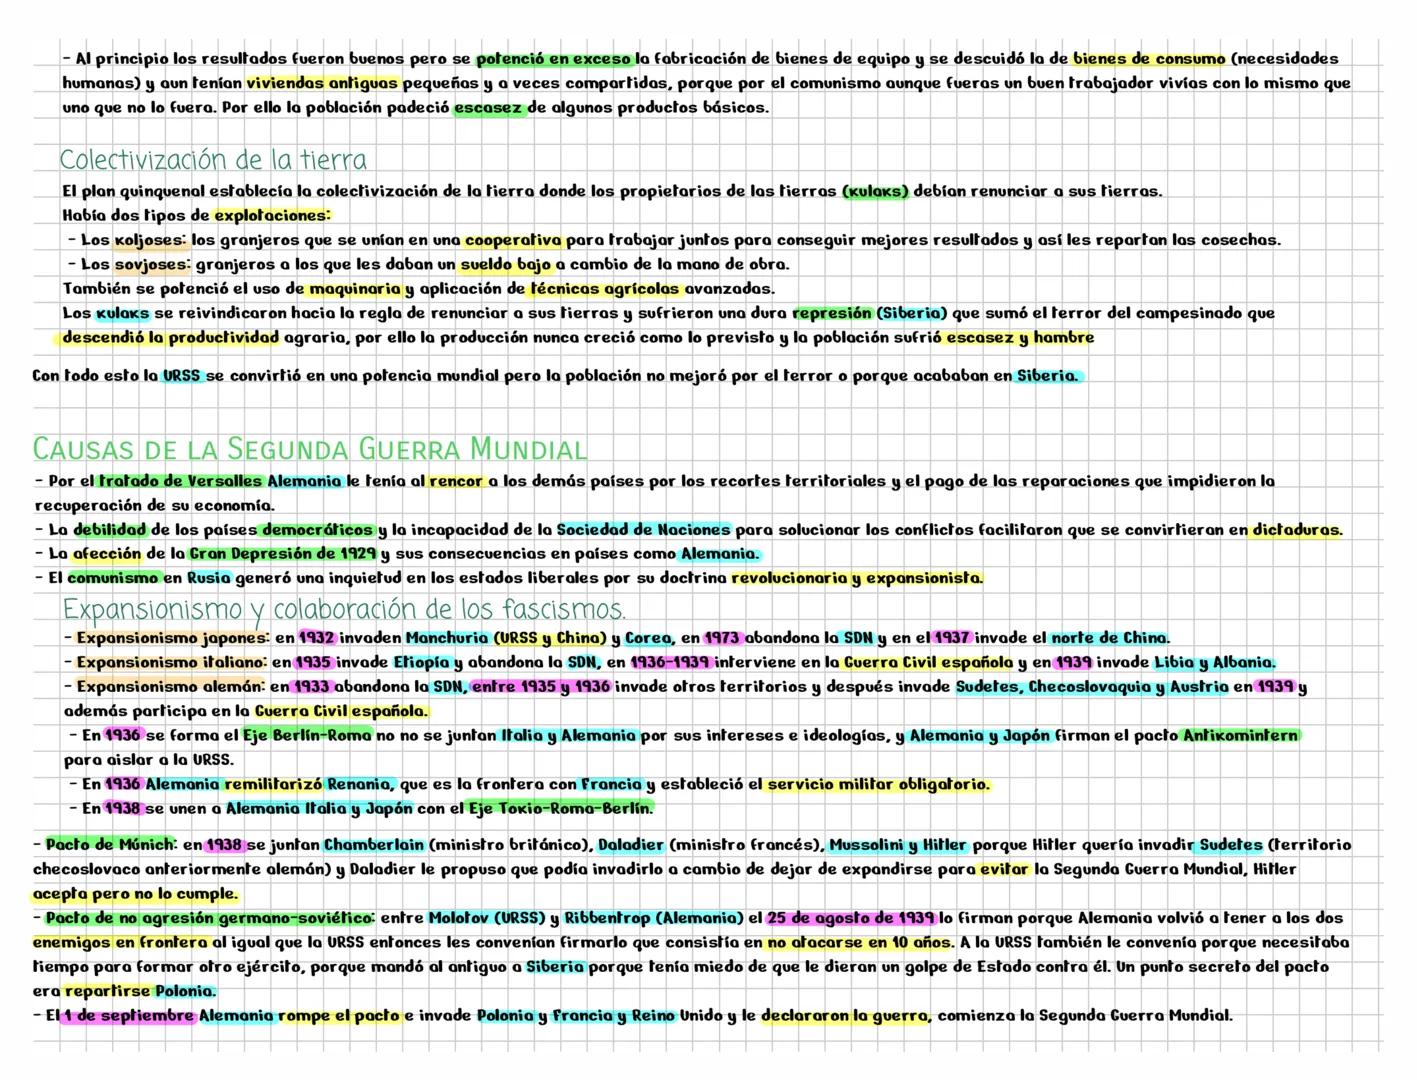 - Al principio los resultados fueron buenos pero se potenció en exceso la fabricación de bienes de equipo y se descuidó la de bienes de consumo (necesidades
humanas) y aun tenían viviendas antiguas pequeñas y a veces compartidas, porque por el comunismo aunque fueras un buen trabajador vivías con lo mismo que
uno que no lo fuera. Por ello la población padeció escasez de algunos productos básicos.
Colectivización de la tierra
El plan quinquenal establecía la colectivización de la tierra donde los propietarios de las tierras (kulaks) debían renunciar a sus tierras.
Había dos tipos de explotaciones:
- Los koljoses: los granjeros que se unían en una cooperativa para trabajar juntos para conseguir mejores resultados y así les repartan las cosechas.
- Los sovjoses: granjeros a los que les daban un sueldo bajo a cambio de la mano de obra.
También se potenció el uso de maquinaria y aplicación de técnicas agrícolas avanzadas.
Los kulaks se reivindicaron hacia la regla de renunciar a sus tierras y sufrieron una dura represión (Siberia) que sumó el terror del campesinado que
descendió la productividad agraria, por ello la producción nunca creció como lo previsto y la población sufrió escasez y hambre
Con todo esto la URSS se convirtió en una potencia mundial pero la población no mejoró por el terror o porque acababan en Siberia.
CAUSAS DE LA SEGUNDA GUERRA MUNDIAL
- Por el tratado de Versalles Alemania le tenía al rencor a los demás países por los recortes territoriales y el pago de las reparaciones que impidieron la
recuperación de su economía.
- La debilidad de los países democráticos y la incapacidad de la Sociedad de Naciones para solucionar los conflictos facilitaron que se convirtieran en dictaduras.
- La afección de la Gran Depresión de 1929 y sus consecuencias en países como Alemania.
- El comunismo en Rusia generó una inquietud en los estados liberales por su doctrina revolucionaria y expansionista.
Expansionismo y colaboración de los fascismos.
- Expansionismo japones: en 1932 invaden Manchuria (URSS y China) y Corea, en 1973 abandona la SDN y en el 1937 invade el norte de China.
- Expansionismo italiano: en 1935 invade Etiopía y abandona la SDN, en 1936-1939 interviene en la Guerra Civil española y en 1939 invade Libia y Albania.
- Expansionismo alemán: en 1933 abandona la SDN, entre 1935 y 1936 invade otros territorios y después invade Sudetes, Checoslovaquia y Austria en 1939 y
además participa en la Guerra Civil española.
- En 1936 se forma el Eje Berlín-Roma no no se juntan Italia y Alemania por sus intereses e ideologías, y Alemania y Japón firman el pacto Antikomintern
para aislar a la URSS.
- En 1936 Alemania remilitarizó Renania, que es la frontera con Francia y estableció el servicio militar obligatorio.
- En 1938 se unen a Alemania Italia y Japón con el Eje Tokio-Roma-Berlín.
- Pacto de Múnich: en 1938 se juntan Chamberlain (ministro británico), Daladier (ministro francés), Mussolini y Hitler porque Hitler quería invadir Sudetes (territorio
checoslovaco anteriormente alemán) y Daladier le propuso que podía invadirlo a cambio de dejar de expandirse para evitar la Segunda Guerra Mundial, Hitler
acepta pero no lo cumple.
- Pacto de no agresión germano-soviético: entre Molotov (URSS) y Ribbentrop (Alemania) el 25 de agosto de 1939 lo firman porque Alemania volvió a tener a los dos
enemigos en frontera al igual que la URSS entonces les convenían firmarlo que consistía en no atacarse en 10 años. A la URSS también le convenía porque necesitaba
tiempo para formar otro ejército, porque mandó al antiguo a Siberia porque tenía miedo de que le dieran un golpe de Estado contra él. Un punto secreto del pacto
era repartirse Polonia.
- El 1 de septiembre Alemania rompe el pacto e invade Polonia y Francia y Reino Unido y le declararon la guerra, comienza la Segunda Guerra Mundial.